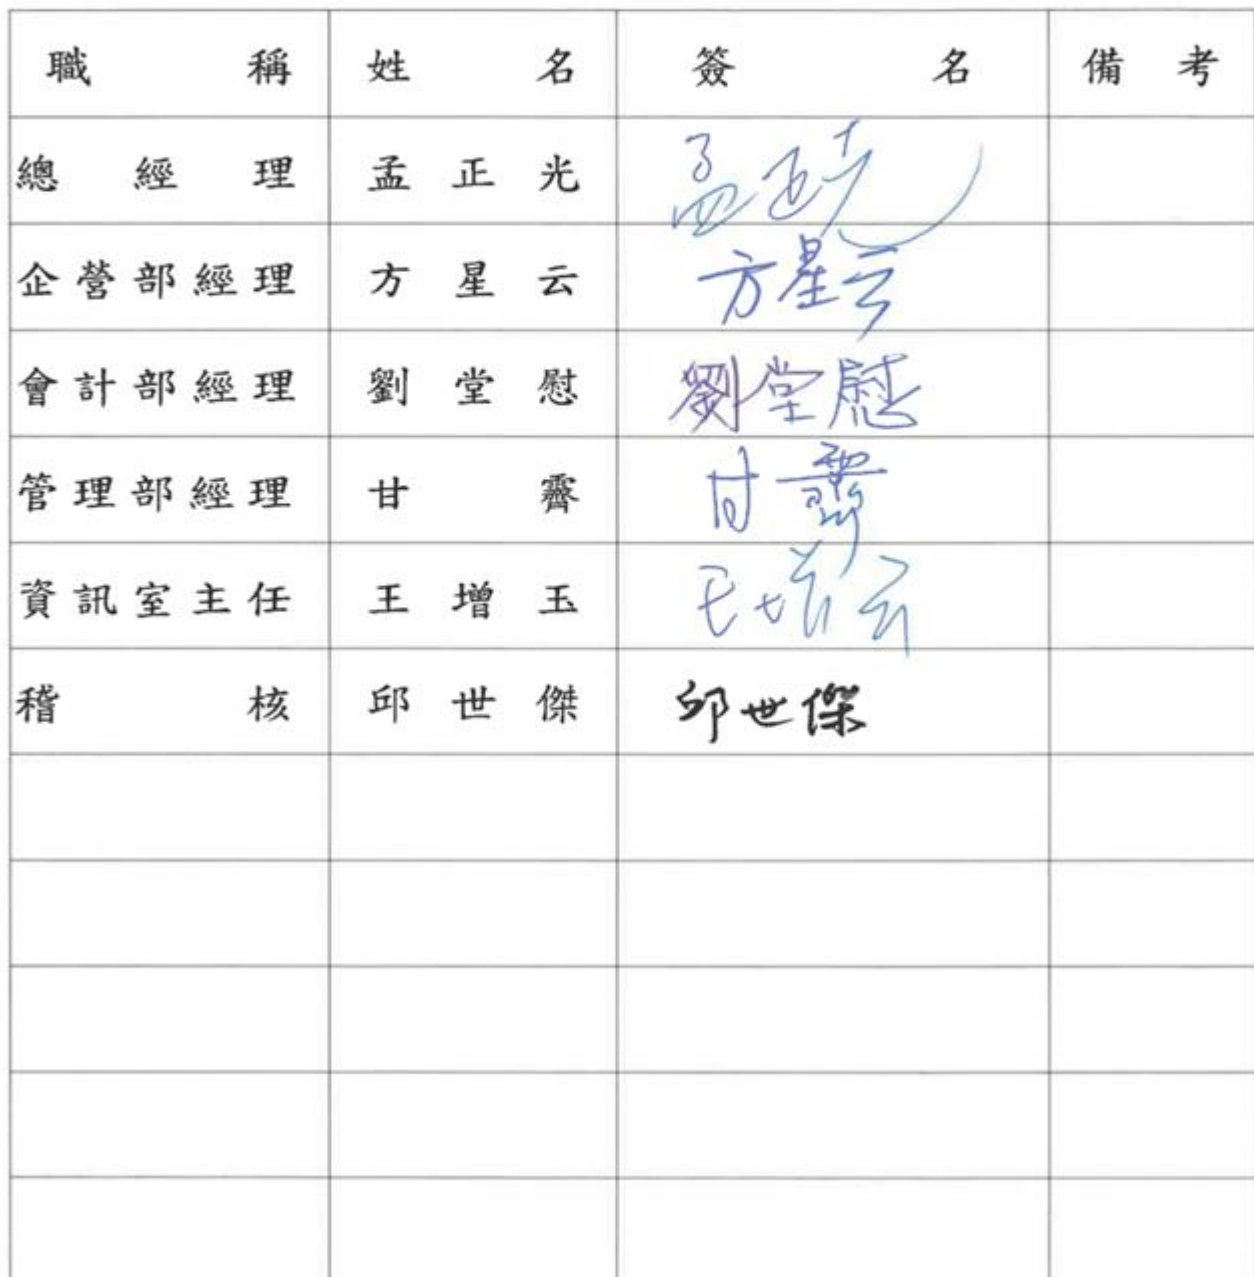 職稱 姓名 簽名 備考
總經理 孟正光 孟正光
企營部經理 方星云 方星云
會計部經理 劉堂慰 劉堂慰
管理部經理 甘霽 甘霽
資訊室主任 王增玉
稽核 邱世傑 邱世傑